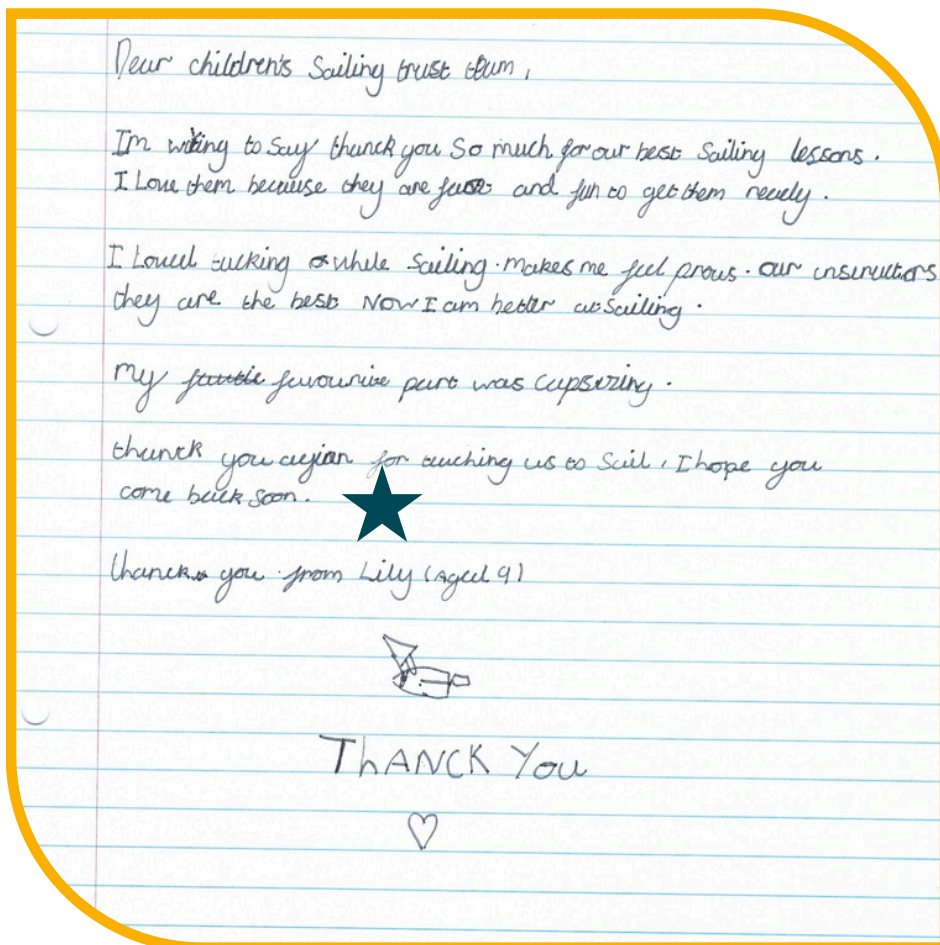 Dear children's Sailing trust team,
Im writing to say thanck you so much for our best sailing lessons.
I Love them because they are fast and fun to get them ready.
I Loved tacking while sailing. makes me feel prous. our insructors
they are the best Now I am better at sailing.
my favourite part was capsizing.
thanck you agian for teaching us to sail, I hope you
come back soon.
thanck you from Lily (aged 9)
ThANCK You